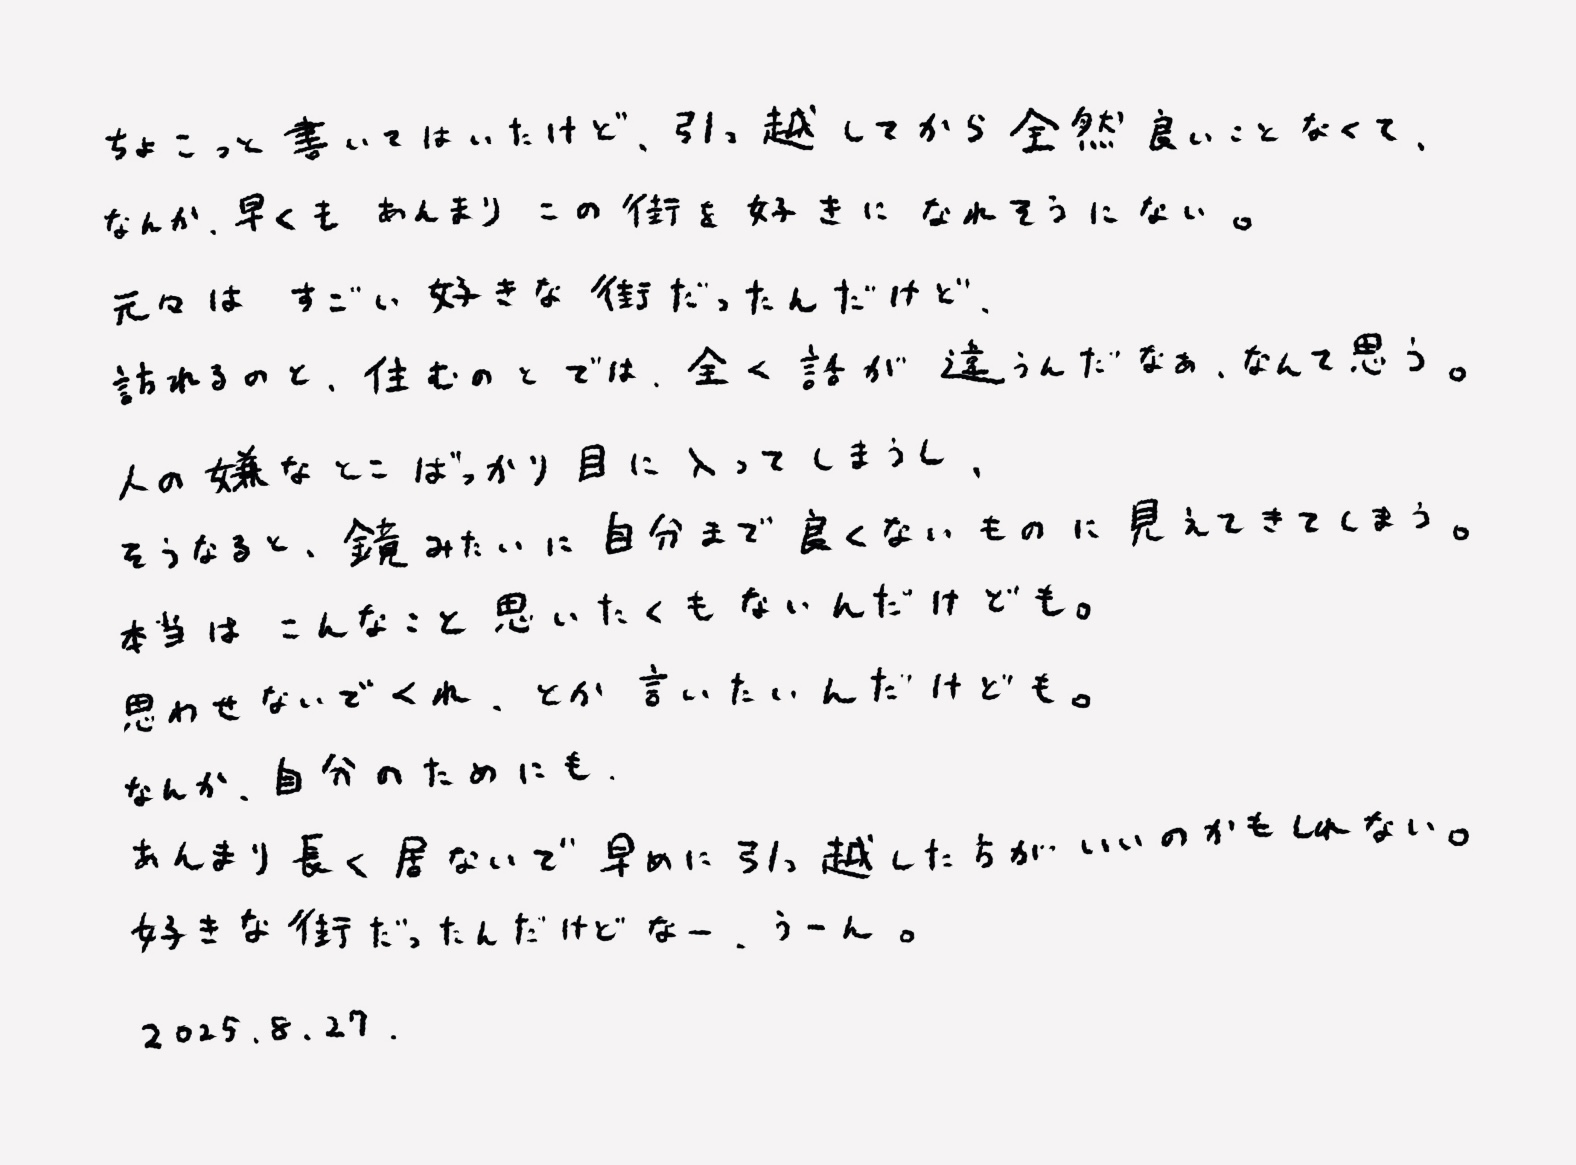 ちょこっと書いてはいたけど、引っ越ししてから全然良いことなくて、
なんか、早くもあんまりこの街を好きになれそうにない。
元々はすごい好きな街だったんだけど、
訪れるのと、住むのとでは、全く話が違うんだなぁ、なんて思う。
人の嫌なとこばっかり目に入ってしまうし、
そうなると、鏡みたいに自分まで良くないものに見えてきてしまう。
本当はこんなこと思いたくもないんだけども。
思わせないでくれ、とか言いたいんだけども。
なんか、自分のためにも、
あんまり長く居ないで早めに引っ越した方がいいのかもしれない。
好きな街だったんだけどなー、うーん。
2025.8.27.